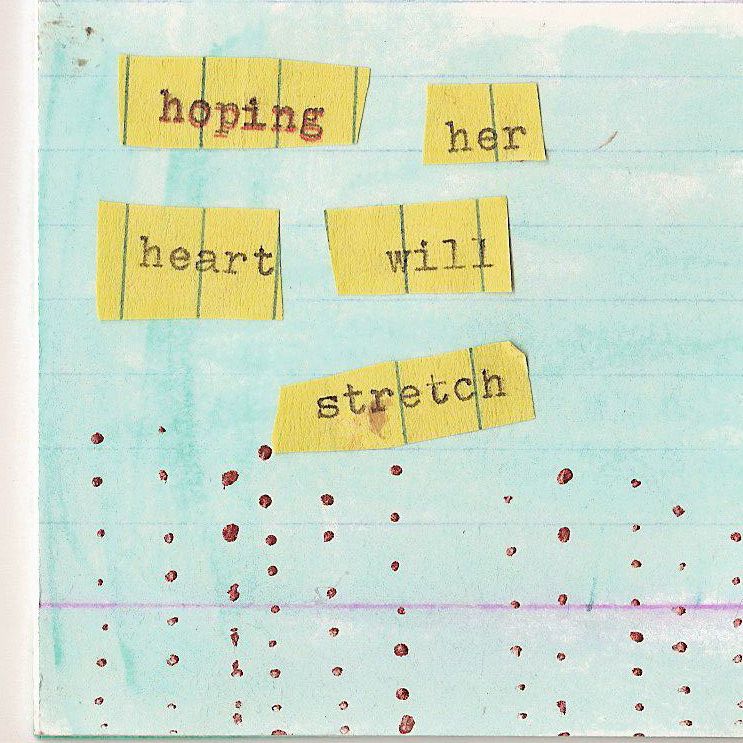 hoping her
heart will
stretch